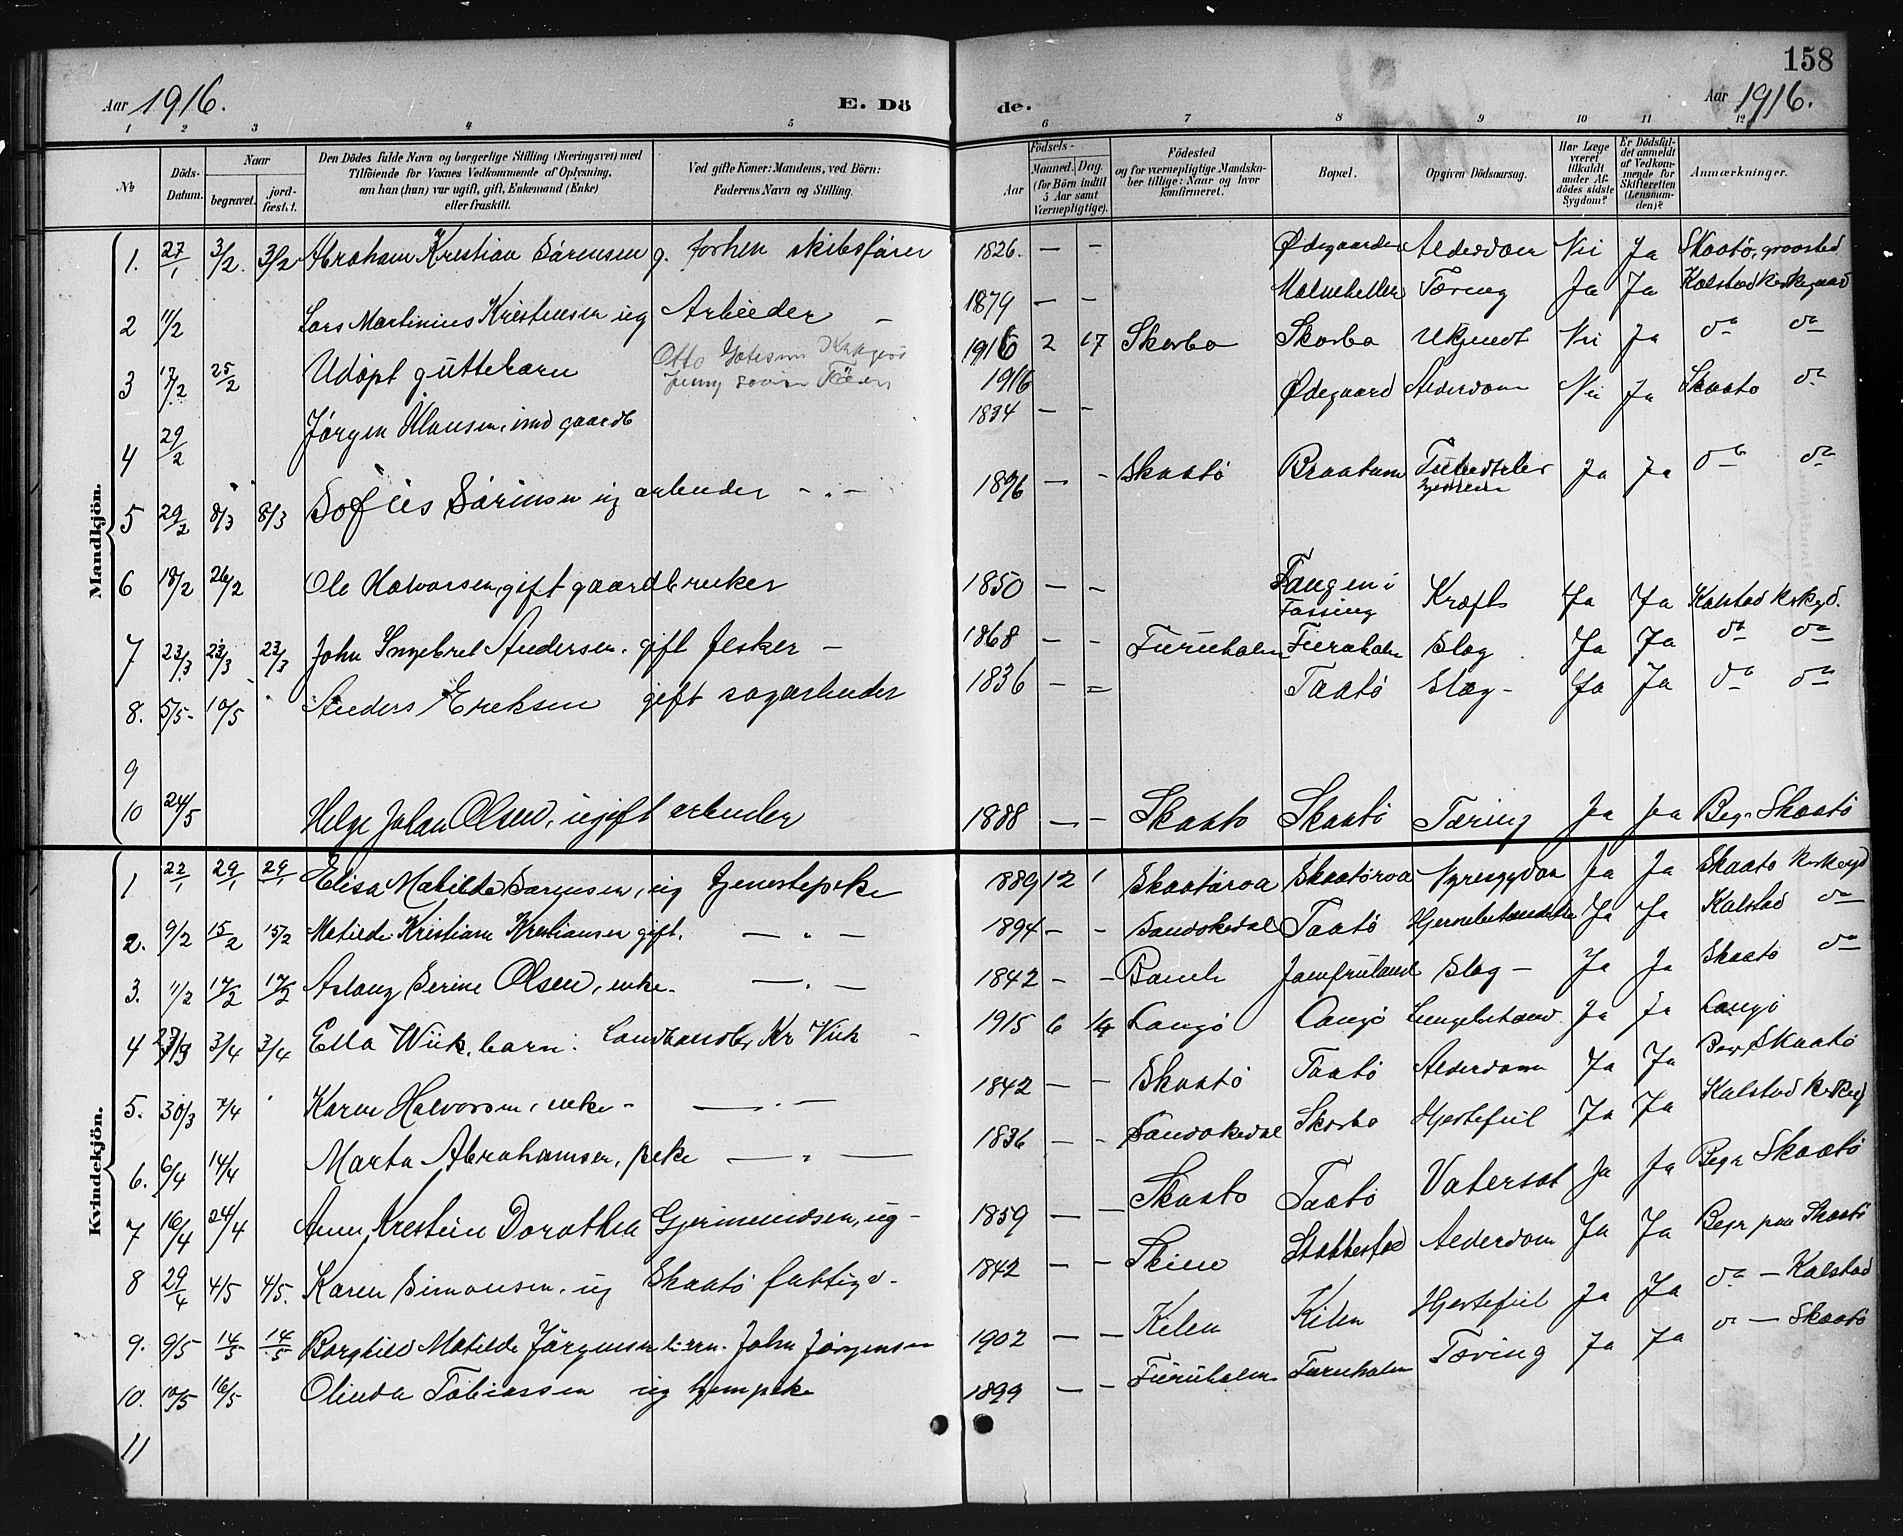 158
Aar 1916. E. Dö de. Aar 1916.
1 2 3 4 5 6 7 8 9 10 11 12
No
Döds-Datum.
Naar
begravet.
jord-fæstet.
Den Dödes fulde Navn og borgerlige Stilling (Næringsvei) med
Tilföiende for Voxnes Vedkommende af Oplysning,
om han (hun) var ugift, gift, Enkemand (Enke)
eller fraskilt.
Ved gifte Koner: Mandens, ved Börn:
Faderens Navn og Stilling.
Födsels-
Aar
Maaned. Dag.
(for Börn indtil
5 Aar samt
Værnepligtige).
Födested
og for værnepligtige Mandska-
ber tillige: Naar og hvor
konfirmeret.
Bopæl.
Opgiven Dödsaarsag.
Har Læge
været
tilkaldt
under Af-
dödes sidste
Sygdom?
Er Dödsfal-
det anmeldt
af Vedkom-
mende for
Skifteretten
(Lensman-
den)?
Anmærkninger.
Mandkjön.
1. 27/1 3/2. 3/2 Abraham Kristian Sörensen g. forhen skibsfører 1826. — — Ødegaarden Alderdom Nei Ja Skaatø, gravsted
2 11/2 Lars Martinius Kristensen ug Arbeider — 1879 — — Tæring Ja Ja Kalstad Kirkegaard
3 17/2 25/2 Udöpt guttebarn Otto 1916 2 17 Skorbo Skorbo Ukjendt Nei Ja do do
1916
4 29/2 Jørgen Klausen, gaardb 1834 — — Ødegaard Alderdom Nei Ja Skaatø do
5 29/2 8/3 8/3 Sofus Sörensen ug arbeider — " — 1896 — — Skaatø Braatum Ja Ja do do
6 18/2 26/2 Ole Halvorsen, gift gaardbruker 1850 — — Tangen i Kræft Ja Ja Kalstad Kirkgd.
7 23/3 23/3 23/3 John Ingebret Andersen. gift fisker — 1868 — — Furuholm Furuholm Slag Ja Ja do do
8. 5/5 10/5 Anders Eriksen gift sagarbeider 1836 — = Taatø Slag — Ja Ja do do
9
10 24/5 Helge Johan Olsen, ugift arbeider 1888 — — Skaatø Skaatø Tæring Ja Ja Begr Skaatø
Kvindekjön.
1 22/1 29/1 29/1 Elisa Matilde Sörensen, ug tjenestepike 1889 12 1 Skaatøroa Skaatøroa Ja Ja Skaatø Kirkegd
2. 9/2 15/2 15/2 Matilde Kristiane Kristiansen gift. — " — 1894 — — Sandøkedal Taatø Hjernebetændelse Ja Ja Kalstad do
3. 11/2 17/2 17/2 Aslaug Serine Olsen, enke — — . — 1842 — — Bamle Jomfruland Slag — Ja Ja Skaatø do
4 3/4 3/4 Ella Wiik, barn: Landhandler Kr Viik — 1915 6 14 Langø Langø Lungebetænd. Ja Ja Langø
5. 30/3 7/4 Karen Halvorsen, enke — — " — 1842 — — Skaatø Taatø Alderdom Ja Ja Begr Skaatø
6. 6/4 14/4 Marta Abrahamsen, pike — " — 1836 — — Sandøkedal Skorbo Hjertefeil Ja Ja Kalstad Kirkegd
7 16/4 24/4 Anne Kristine Dorothea Gjermundsen, ug — 1859 — — Skaatø Taatø Vatersot Ja Ja Begr Skaatø
8 29/4 4/5 4/5. Karen Simonsen, ug Skaatø fattigv. 1842 — — Skien Stabbestad Alderdom Ja Ja Begr paa Skaatø
9. 9/5 14/5 14/5 Borghild Matilde Jörgensen barn. John Jörgensen 1902 — — Kilen Kilen Hjertefeil Ja Ja do — Kalstad
10. 10/5 16/5 Olinda Tobiassen ug hjempike 1899 — — Furuholm Furuholm Tæring Ja Ja do — Skaatø
11